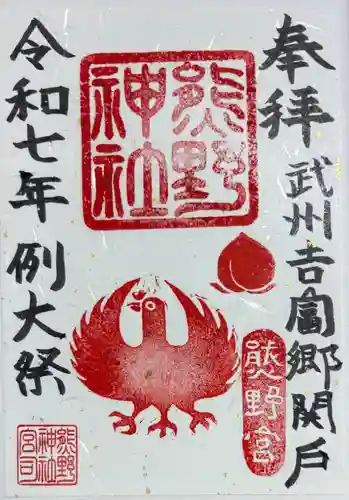 奉拝
武州吉富郷関戸
熊野
神社
熊野宮
令和七年例大祭
熊野
神社
宮司